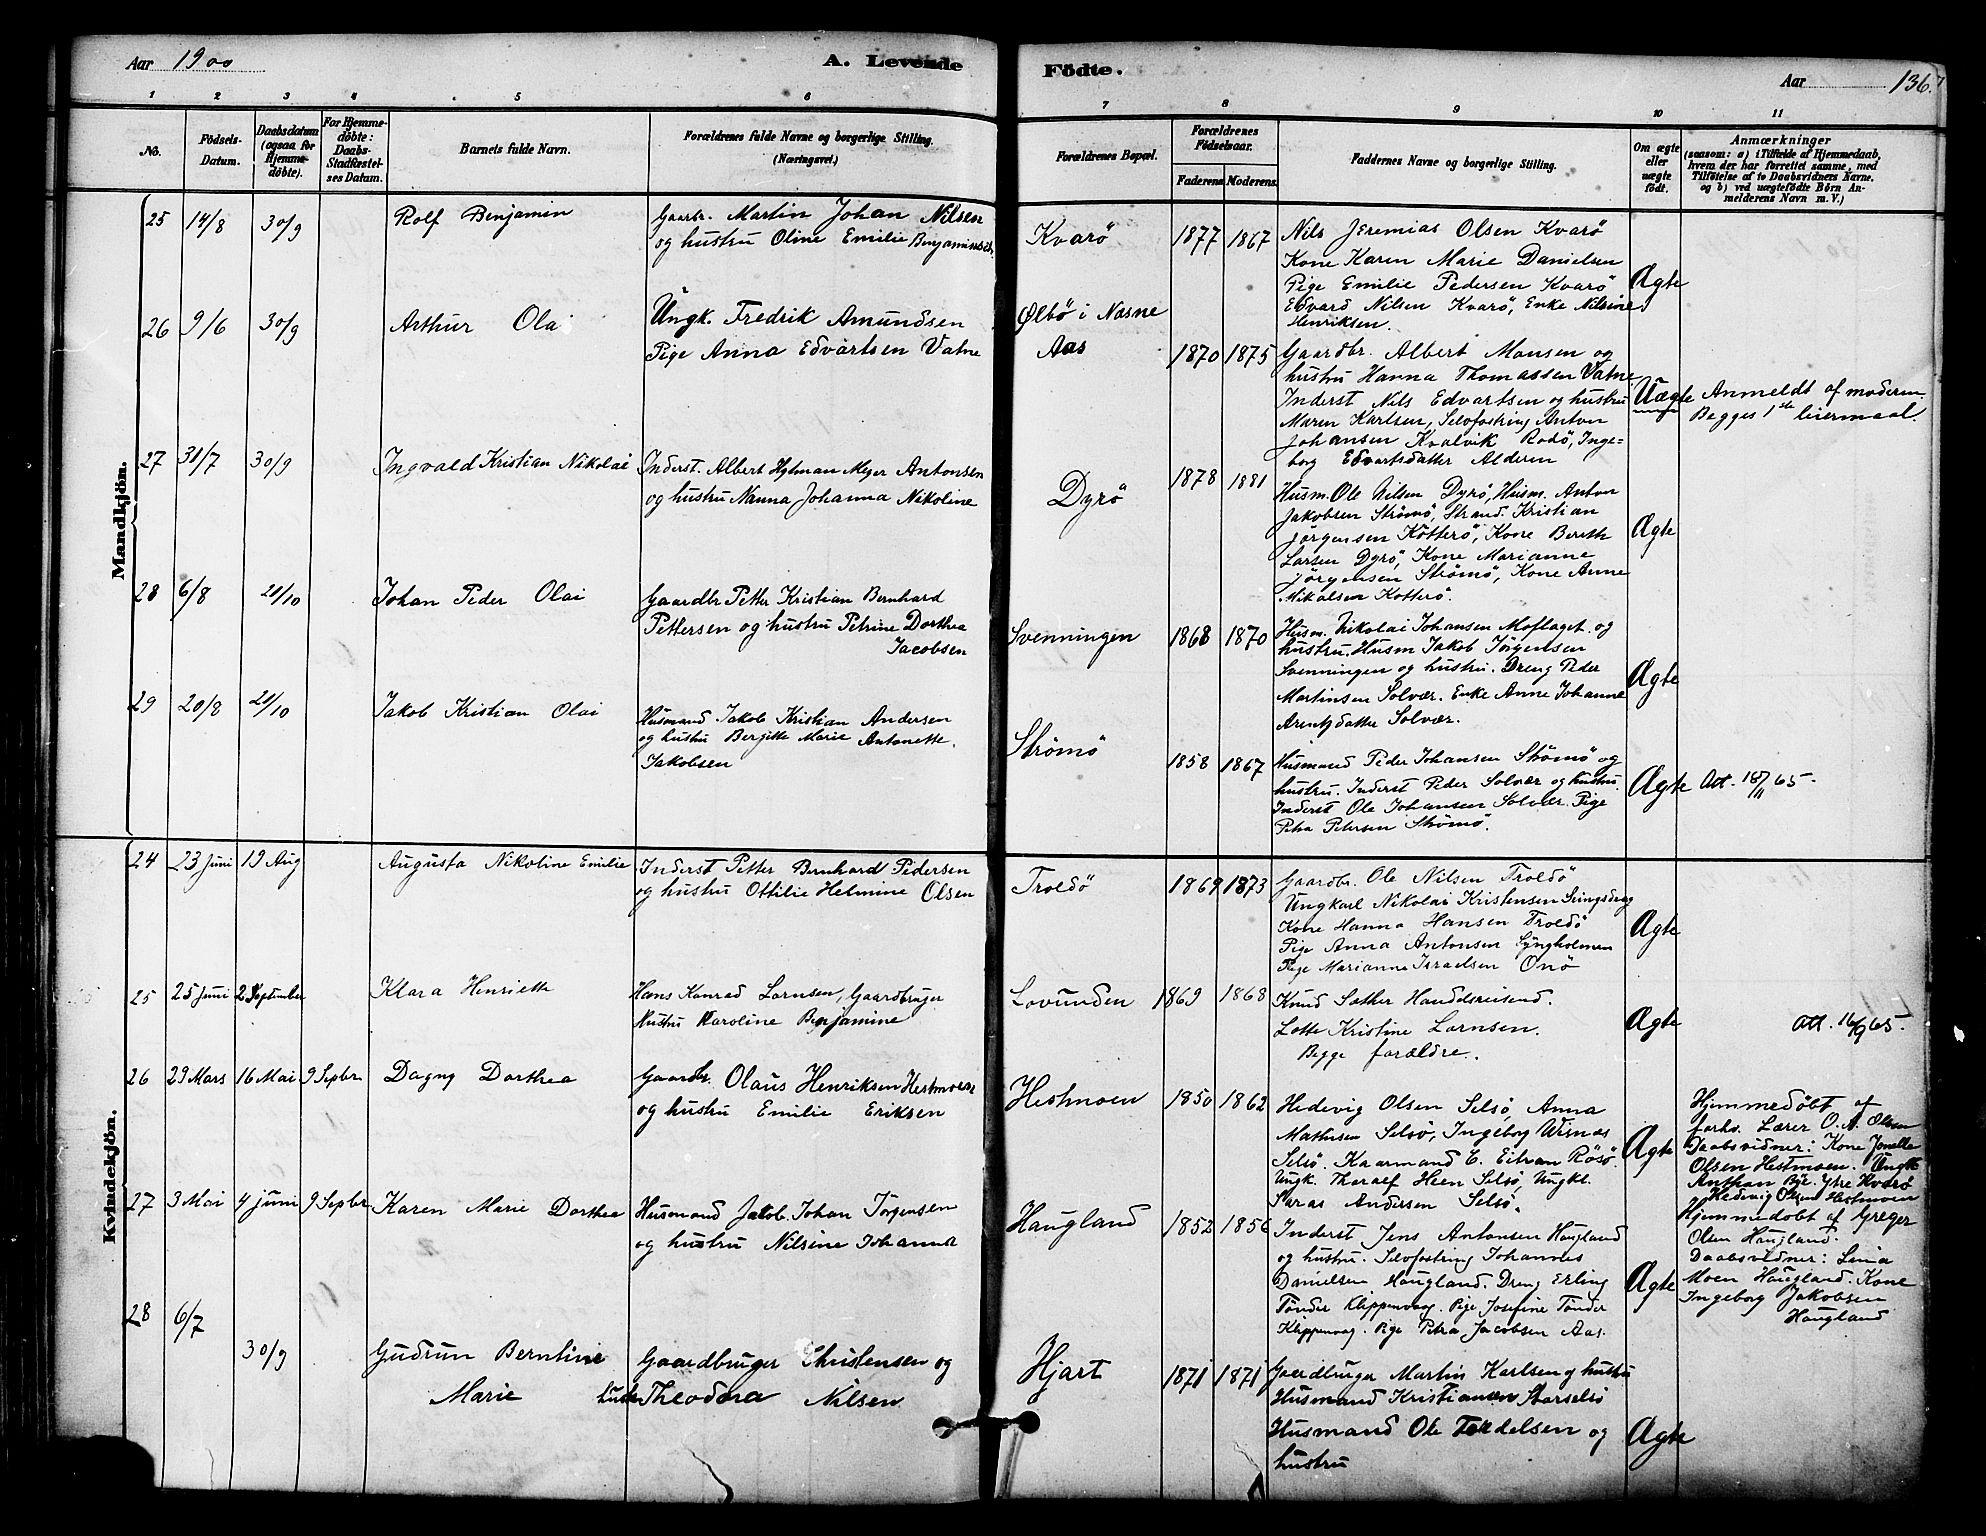 Aar 1900
A. Levende
Födte.
Aar
136.
1 2 3 4 5 6 7 8 9 10 11
No.
Födsels-
Datum.
Daabsdatum
(ogsaa for
Hjemme-
döbte).
For Hjemme-
döbte:
Daabs-
Stadfæstel-
ses Datum.
Barnets fulde Navn.
Forældrenes fulde Navne og borgerlige Stilling.
(Næringsvei.)
Forældrenes Bopæl.
Forældrenes
Födselsaar.
Faderens. Moderens.
Faddernes Navne og borgerlige Stilling.
Om ægte
eller
uægte
födt.
Anmærkninger
(saasom: a) i Tilfælde af Hjemmedaab,
hvem der har forrettet samme, med
Tilföielse af to Daabsvidners Navne,
og b) ved uægtefödte Börn An-
melderens Navn m. V.)
Mandkjön.
25 14/8 30/9 Rolf Benjamin
Gaarbr. Martin Johan Nilsen
og hustru Oline Emilie Benjaminsdt.
Kvarö 1877 1867
Nils Jeremias Olsen Kvarö
Kone Karen Marie Danielsen
Pige Emilie Pedersen Kvarö
Edvard Nilsen Kvarö, Enke Nilsine
Henriksen.
Ægte
26 9/6 30/9 Arthur Olai
Ungk. Fredrik Amundsen
Pige Anna Edvartsen Vatne
Ølbö i Næsne
Aas 1870 1875
Gaardbr. Albert Monsen og
hustru Hanna Thomassen Vatne
Inderst Nils Edvartsen og hustru
Maren Karlsen, Selvfostring Anton
Johansen Kvalvik Rodö, Inge=
borg Edvartsdatter Alderen
Uægte
Anmeldt af moderen
Begges 1ste leiermaal.
27 31/7 30/9 Ingvald Kristian Nikolai
Inderst. Albert Hytman Meyer Antonsen
og hustru Nanna Johanna Nikoline
Dyrö 1878 1881
Husm. Ole Nilsen Dyrö, Husm. Anton
Jakobsen Strömö, Strand. Kristian
Jörgensen Kötterö, Kone Bereth
Larsen Dyrö, Kone Marianne
Jörgensen Strömö, Kone Anne
Mikalsen Kotterö.
Ægte
28 6/8 21/10 Johan Peder Olai
Gaardbr Petter Kristian Bernhard
Pettersen og hustru Petrine Dorthea
Jacobsen
Svenningen 1868 1870
Husm. Nikolai Johansen Moflaget og
hustru. Husm Jakob Jörgensen
Svenningen og hustru. Dreng Peder
Martinsen Solvær. Enke Anne Johanne
Arentzdatter Solvær.
Ægte
29 20/8 21/10 Jakob Kristian Olai
Husmand Jakob Kristian Andersen
og hustru Bergitte Marie Antonette
Jakobsen
Strömö 1858 1867
Husmand Peder Johansen Strömö og
hustru. Inderst Peder Solvær og hustru
Inderst Ole Johansen Solvær. Pige
Petra Petersen Strömö.
Ægte
Att. 18/11 65
Kvindekjön.
24 23 Juni 19 Aug Augusta Nikoline Emilie
Inderst Petter Bernhard Pedersen
og hustru Ottilie Helmine Olsen
Troldö 1869 1873
Gaardbr. Ole Nilsen Troldö
Ungkarl Nikolai Kristensen
Kone Hanna Hansen Troldö
Pige Anna Antonsen Lyngholmen
Pige Marianne Israelsen Onö
Ægte
25 25 Juni 2 September Klara Henriette
Hans Konrad Lornsen, Gaardbruger
Hustru Karoline Benjamine
Lovunden 1869 1868
Knud Sæther Handelsreisend.
Lotte Kristine Lornsen.
Begge forældre.
Ægte
Att. 16/9 65.
26 29 Mars 16 Mai 9 Septbr Dagny Dorthea
Gaardbr. Olaus Henriksen Hestmoen
og hustru Emilie Eriksen
Hestmoen 1850 1862
Hedevig Olsen Selsö, Anna
Mathisen Selsö, Ingeborg Wisnæs
Selsö. Kaarmand E. Röso.
Ungk. Tharalf Heen Selsö, Ungk.
Andersen Selsö.
Ægte
Hjemmedöbt af
forhv. Lærer O. A. Olsen
Daabsvidner: Kone Jonella
Olsen Hestmoen. Ungk
Anthon Bye. Ytre Kvarö
Hedevig Olsen Hestmoen
27 3 Mai 4 Juni 9 Septbr Karen Marie Dorthea
Husmand Jakob Johan Jörgensen
og hustru Nilsine Johanna
Haugland 1852 1856
Inderst Jens Antonsen Haugland
og hustru. Selvfostring Johannes
Danielsen Haugland. Dreng Erling
Tönder Klippenvaag. Pige Josefine Tönder
Klippenvag. Pige Petra Jacobsen Aas.
Ægte
Hjemmedöbt af Greger
Olsen Haugland.
Daabsvidner: Lina
Moen Haugland. Kone
Ingeborg Jakobsen
Haugland
28 6/7 30/9 Gudrun Berntine
Marie
Gaardbruger Christensen og
hustru Theodora Nilsen
Hjart 1871 1871
Gaardbruger Martin Karlsen og hustru
Husmand Kristiansen Storselsö
Husmand Ole Tendelsen og
hustru
Ægte